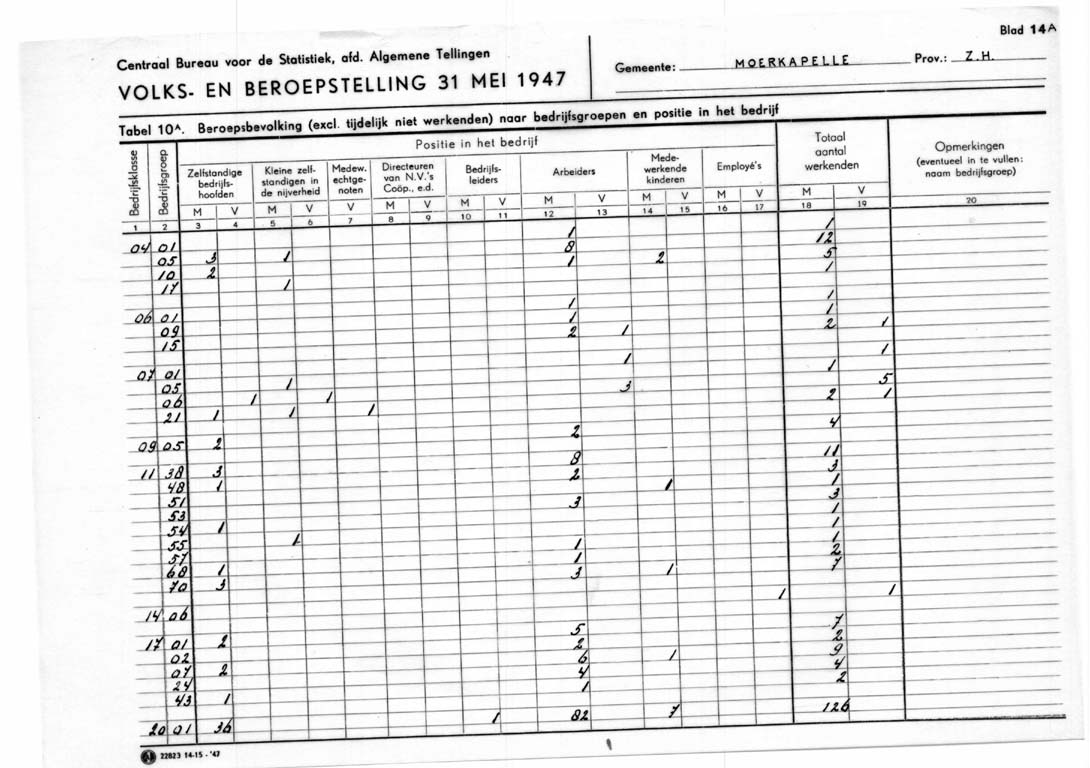 Blad 14A
Centraal Bureau voor de Statistiek, afd. Algemene Tellingen
VOLKS- EN BEROEPSTELLING 31 MEI 1947
Gemeente: MOERKAPELLE Prov.: Z.H.
Tabel 10A. Beroepsbevolking (excl. tijdelijk niet werkenden) naar bedrijfsgroepen en positie in het bedrijf
Bedrijfsklasse
Bedrijfsgroep
Positie in het bedrijf
Zelfstandige
bedrijfs-
hoofden
Kleine zelf-
standigen in
de nijverheid
Medew.
echtge-
noten
Directeuren
van N.V.'s
Coöp., e.d.
Bedrijfs-
leiders
Arbeiders
Mede-
werkende
kinderen
Employé's
Totaal
aantal
werkenden
Opmerkingen
(eventueel in te vullen:
naam bedrijfsgroep)
M V M V V M V M V M V M V M V M V
1 2 3 4 5 6 7 8 9 10 11 12 13 14 15 16 17 18 19 20
04 01 1 1
05 3 1 8 12
10 2 1 2 5
17 1 1
06 01 1 1
09 1 1
15 2 1 2 1
07 01 1 1
05 1 1
06 1 1 3 5
21 1 1 1 2 1
09 05 2 2 4
11 38 3 8 11
48 1 2 3
51 1 1
53 3 3
54 1 1
55 1 1
57 1 1
68 1 1 2
70 3 3 1 7
14 06 1 1
17 01 2 5 7
02 2 2
07 2 6 1 9
24 4 4
43 1 1 2
20 01 36 1 82 7 126
22823 14-15 - '47